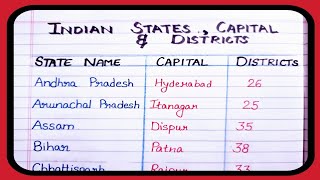 INDIAN STATES, CAPITAL
& DISTRICTS
STATE NAME CAPITAL DISTRICTS
Andhra Pradesh Hyderabad 26
Arunachal Pradesh Itanagar 25
Assam Dispur 35
Bihar Patna 38
Chhattisgarh Raipur 33